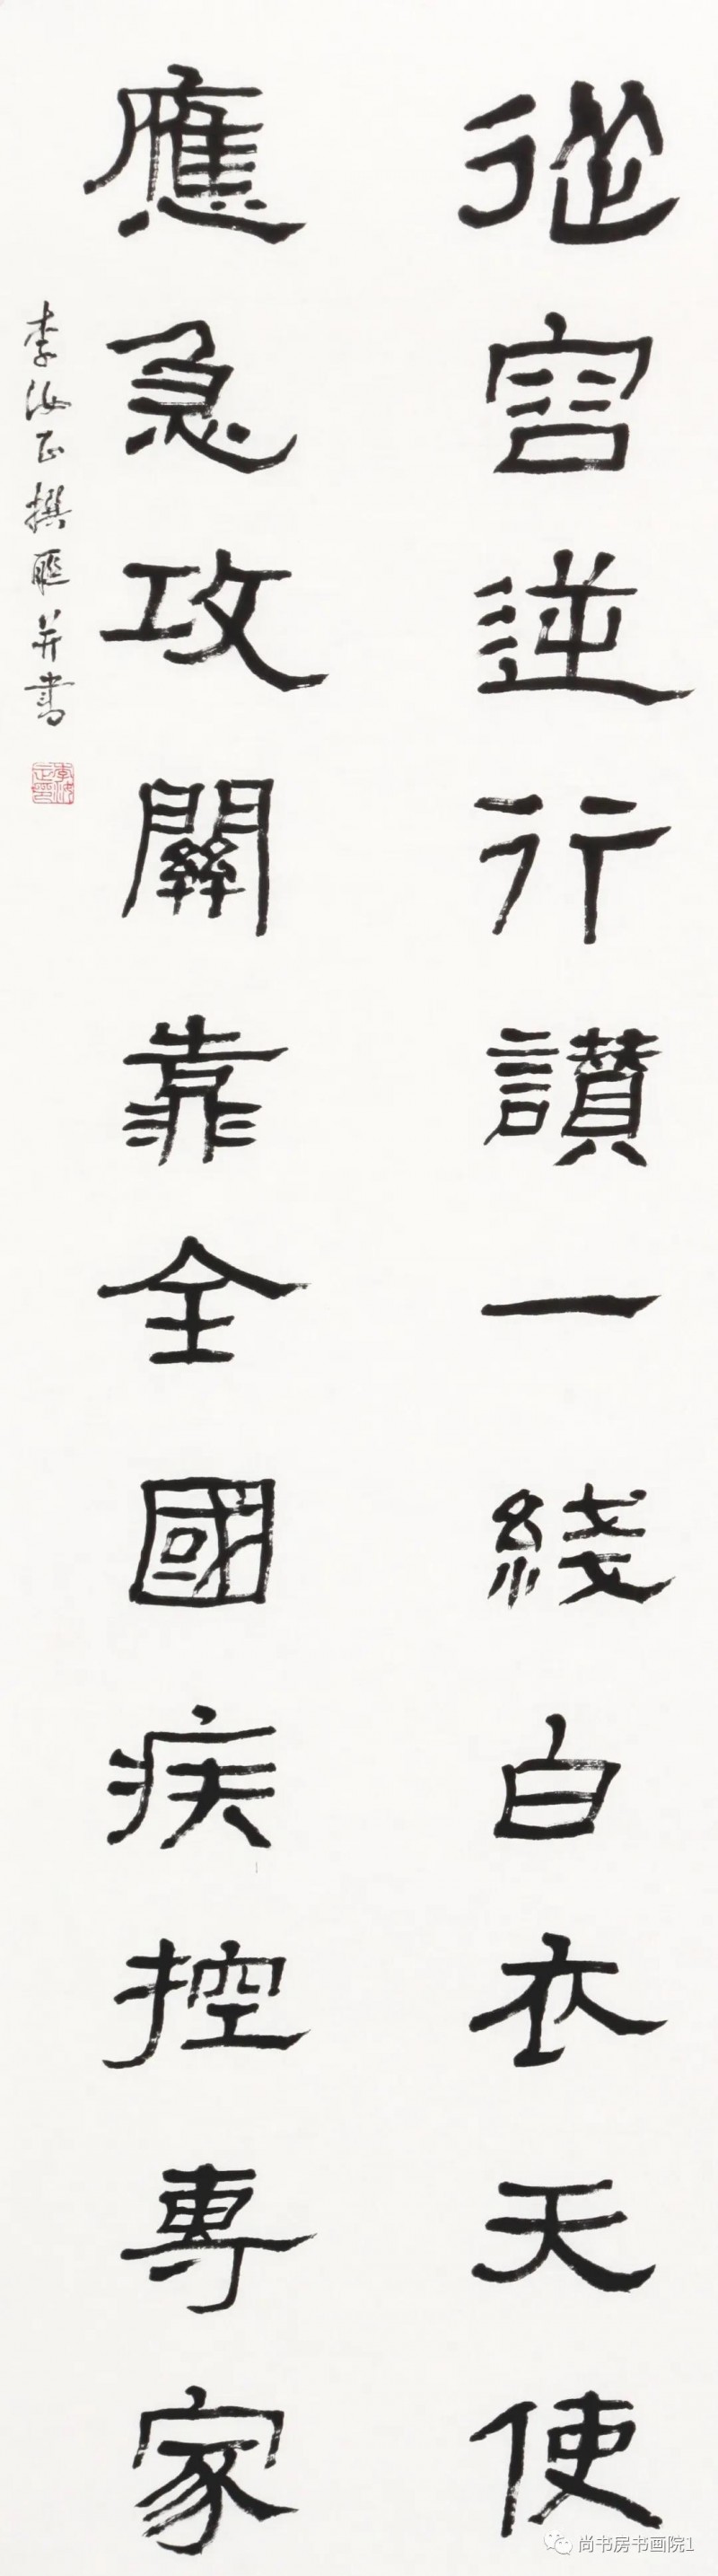 從容逆行讃一綫白衣天使
應急攻關靠全國疾控專家
李汝正撰聯并書
尚书房书画院1